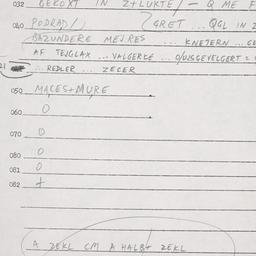 032 GEKOXT IN Z+LUKTE / — Q ME F
040 PODRAD / GRET ... QGL IN Z
BAZUNDERE MEJRES ... KNETERN ... GE
AF TEJGLAX ... VALGERKE ...
21 ... REDLER ... ZECER
050 MACES+MURE
060 0
070 0
080 0
081 0
082 +
A ZEKL CM A HALB+ ZEKL